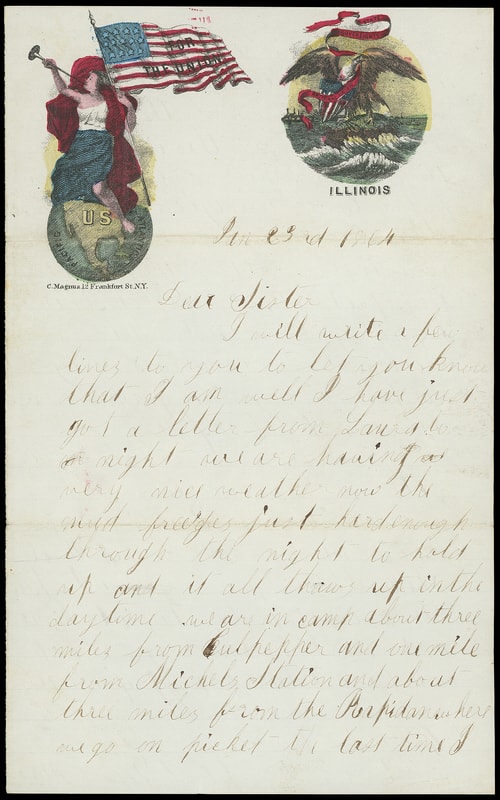 FOR
THE UNION
US
PACIFIC
ILLINOIS
C. Magnus 12 Frankfort St. N.Y.
Jan 23rd 1864
Dear Sister
I will write a few
lines to you to let you know
that I am well I have just
got a letter from Laura
night we are having
very nice weather now the
mud freezes just hard enough
through the night to hold
up and it all thaws up in the
day time we are in camp about three
miles from Culpepper and one mile
from Michels Station and about
three miles from the Rapidan where
we go on picket the last time I